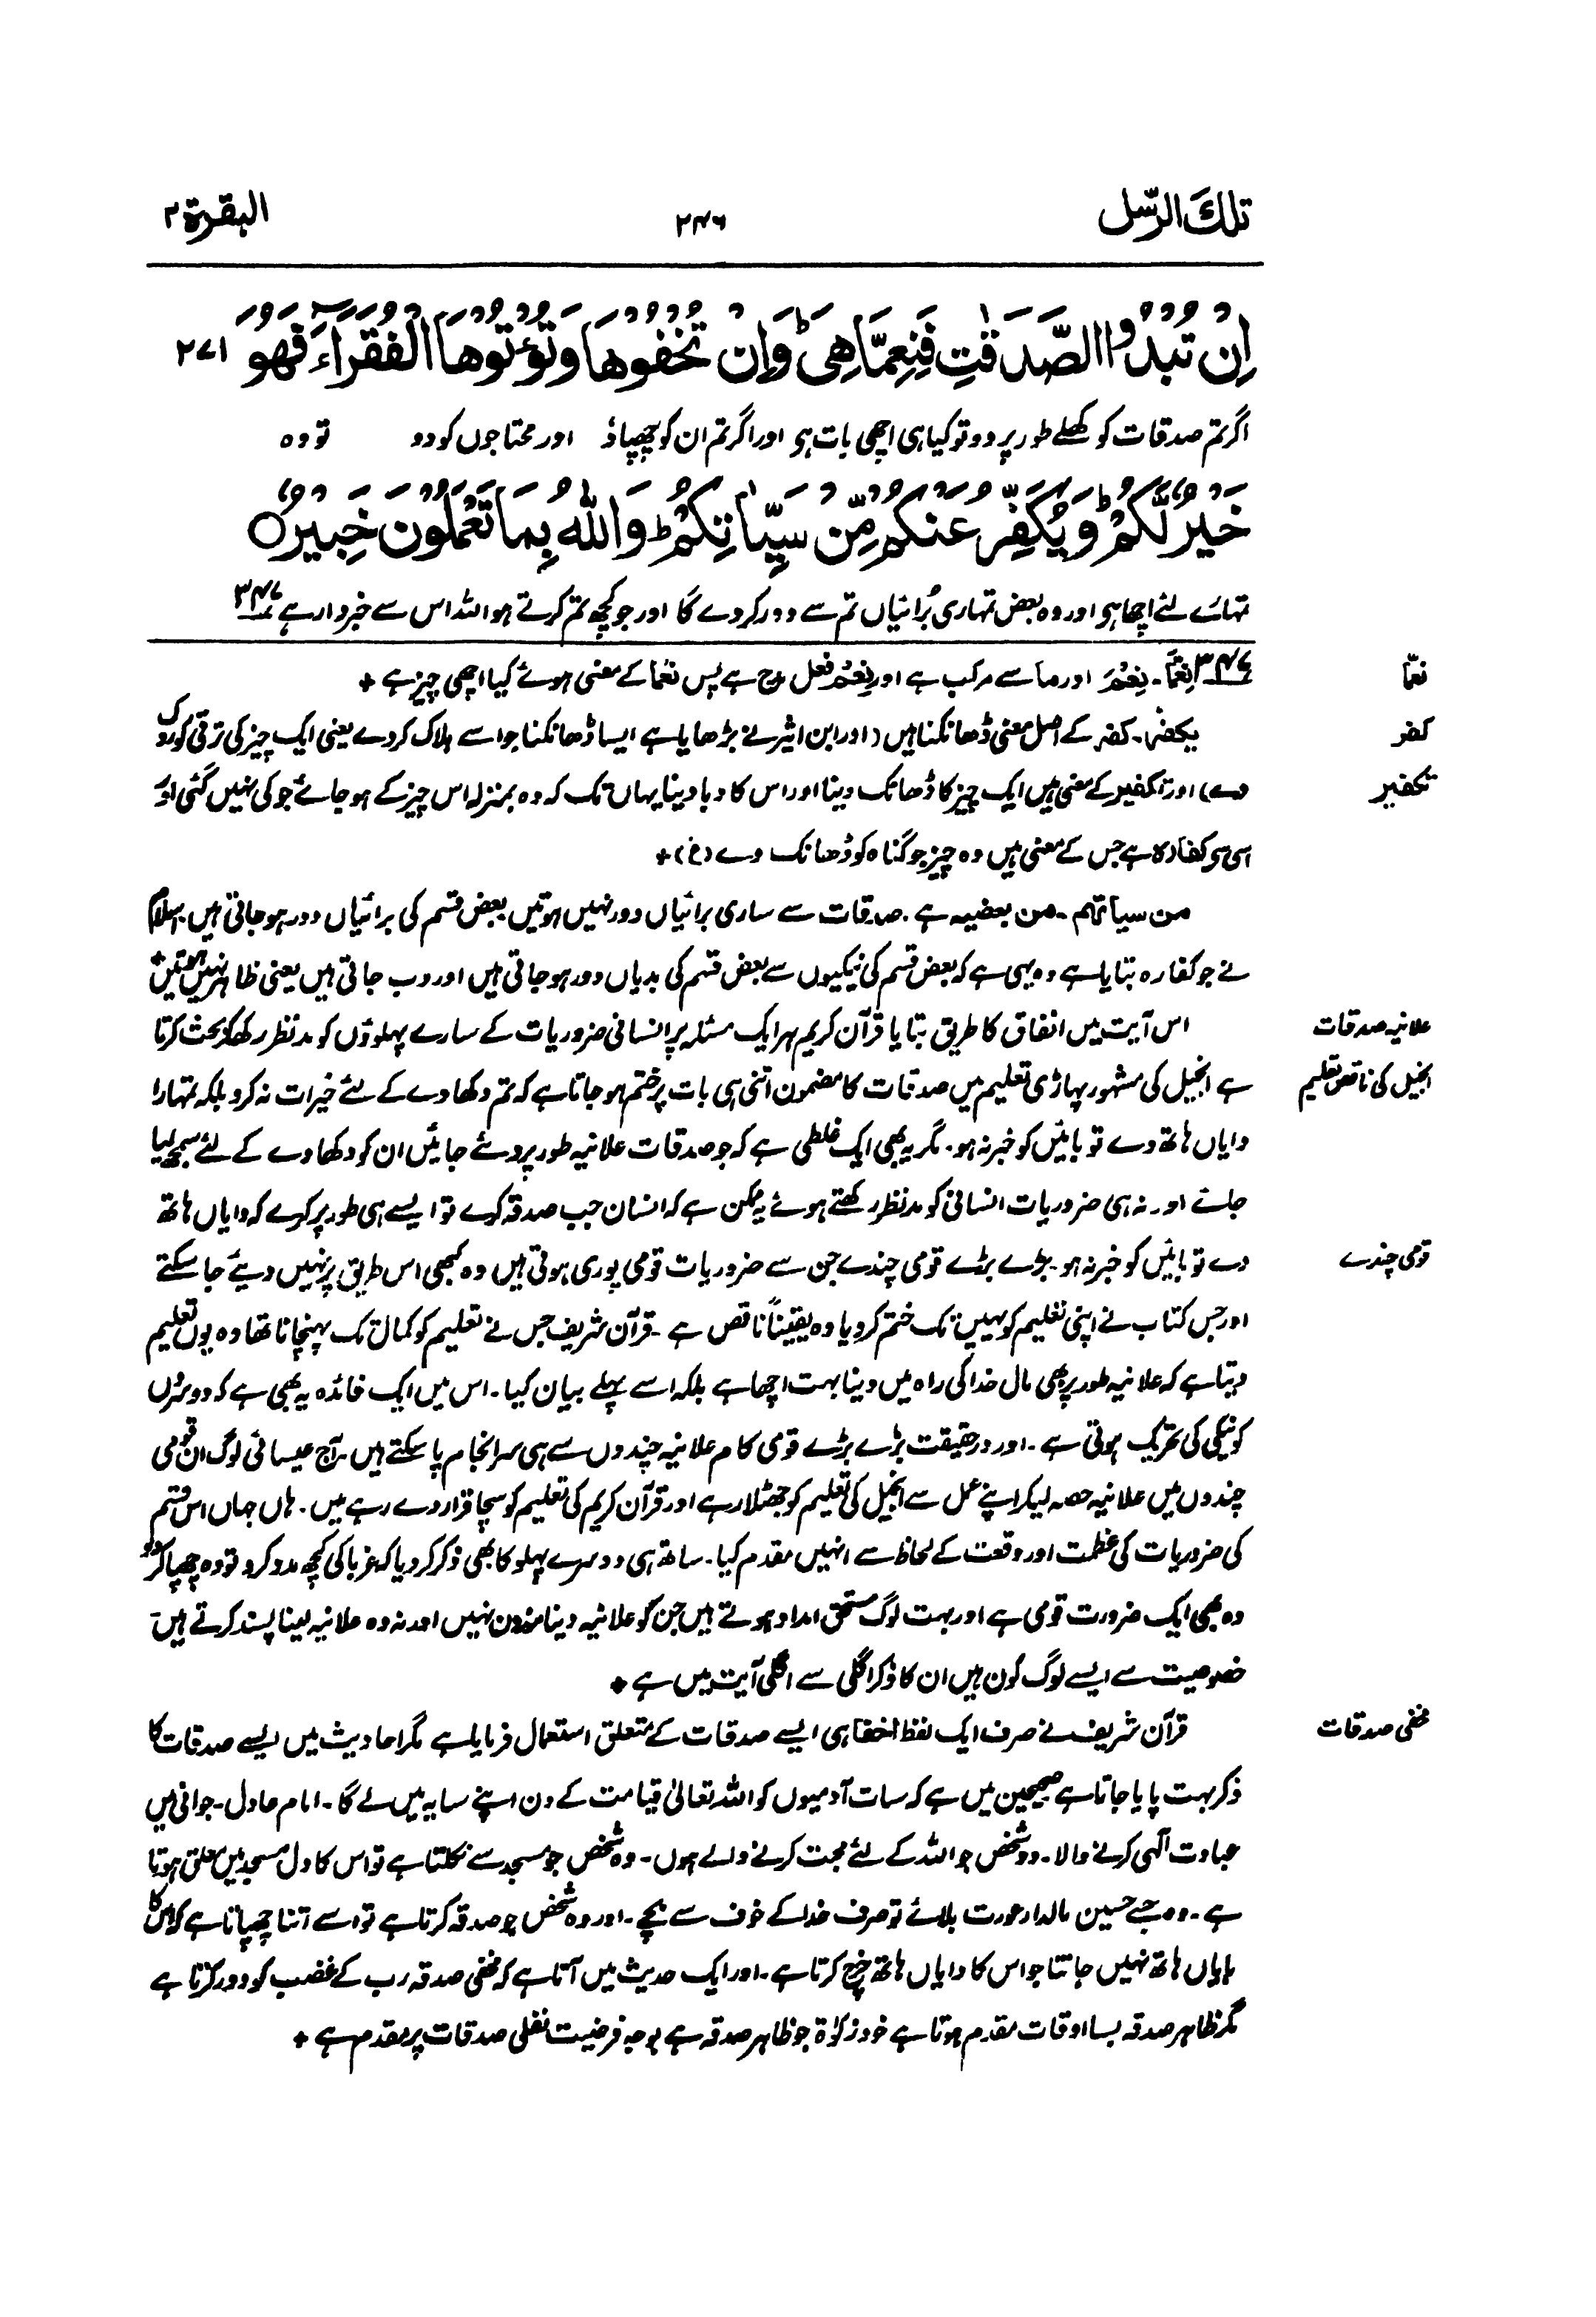 تلك الرّسل ۲۴۶ البقرة ۲
اِنْ تُبْدُوا الصَّدَقٰتِ فَنِعِمَّا هِیَ ۚ وَاِنْ تُخْفُوْهَا وَتُؤْتُوْهَا الْفُقَرَآءَ فَهُوَ ۲۷۱
اگر تم صدقات کو کھلے طور پر دو تو کیا ہی اچھی بات ہو اور اگر تم ان کو چھپاؤ اور محتاجوں کو دو تو وہ
خَیْرٌ لَّكُمْ ؕ وَیُكَفِّرُ عَنْكُمْ مِّنْ سَیِّاٰتِكُمْ ؕ وَاللّٰهُ بِمَا تَعْمَلُوْنَ خَبِیْرٌ ○
تمہارے لئے اچھا ہو اور وہ بعض تمہاری بُرائیاں تم سے دور کر دے گا اور جو کچھ تم کرتے ہو اللہ اس سے خبردار ہے ۳۴۷
نعمّا
۳۴۷ نِعِمَّا۔ نِعْمَ اور ما سے مرکب ہے اور نِعْمَ فعل مدح ہے پس نعما کے معنی ہوئے کیا اچھی چیز ہے +
کفر
یکفر۔ کفر کے اصل معنی ڈھانکنا ہیں (اور ابن اثیر نے بڑھایا ہے ایسا ڈھانکنا جو اسے ہلاک کردے یعنی ایک چیز کی ترقی کو روک
تکفیر
دے) اور تکفیر کے معنی ہیں ایک چیز کا ڈھانک دینا اور اس کا دبا دینا یہاں تک کہ وہ بمنزلہ اس چیز کے ہو جائے جو کی نہیں گئی اور
اسی سے کفارہ ہے جس کے معنی ہیں وہ چیز جو گناہ کو ڈھانک دے (غ) +
من سیاتکم۔ من بعضیہ ہے۔ صدقات سے ساری برائیاں دور نہیں ہوتیں بعض قسم کی برائیاں دور ہو جاتی ہیں۔ اسلام
نے جو کفارہ بتایا ہے وہ یہی ہے کہ بعض قسم کی نیکیوں سے بعض قسم کی بدیاں دور ہو جاتی ہیں اور دب جاتی ہیں یعنی ظاہر نہیں ہوتیں +
علانیہ صدقات
اس آیت میں انفاق کا طریق بتایا قرآن کریم ہر ایک مسئلہ پر انسانی ضروریات کے سارے پہلوؤں کو مدنظر رکھ کر بحث کرتا
انجیل کی ناقص تعلیم
ہے انجیل کی مشہور پہاڑی تعلیم میں صدقات کا مضمون اتنی ہی بات پر ختم ہو جاتا ہے کہ تم دکھاوے کے لئے خیرات نہ کرو بلکہ تمہارا
دایاں ہاتھ دے تو بائیں کو خبر نہ ہو۔ مگر یہ بھی ایک غلطی ہے کہ جو صدقات علانیہ طور پر دئے جائیں ان کو دکھاوے کے لئے سمجھ لیا
جائے اور نہ ہی ضروریات انسانی کو مدنظر رکھتے ہوئے یہ ممکن ہے کہ انسان جب صدقہ کرے تو ایسے ہی طور پر کرے کہ دایاں ہاتھ
قومی چندے
دے تو بائیں کو خبر نہ ہو۔ بڑے بڑے قومی چندے جن سے ضروریات قومی پوری ہوتی ہیں وہ کبھی اس طریق پر نہیں دیئے جا سکتے
اور جس کتاب نے اپنی تعلیم کو یہیں تک ختم کر دیا وہ یقیناً ناقص ہے۔ قرآن شریف جس نے تعلیم کو کمال تک پہنچانا تھا وہ یوں تعلیم
دیتا ہے کہ علانیہ طور پر بھی مال خدا کی راہ میں دینا بہت اچھا ہے بلکہ اسے پہلے بیان کیا۔ اس میں ایک فائدہ یہ بھی ہے کہ دوسروں
کو نیکی کی تحریک ہوتی ہے۔ اور درحقیقت بڑے بڑے قومی کام علانیہ چندوں سے ہی سرانجام پا سکتے ہیں۔ آج عیسائی لوگ ان قومی
چندوں میں علانیہ حصہ لیکر اپنے عمل سے انجیل کی تعلیم کو جھٹلا رہے اور قرآن کریم کی تعلیم کو سچا قرار دے رہے ہیں۔ ہاں جہاں اس قسم
کی ضروریات کی عظمت اور وقعت کے لحاظ سے انہیں مقدم کیا۔ ساتھ ہی دوسرے پہلو کا بھی ذکر کر دیا کہ غربا کی کچھ مدد کرو تو وہ چھپا کر دو
وہ بھی ایک ضرورت قومی ہے اور بہت لوگ مستحق امداد ہوتے ہیں جن کو علانیہ دینا موزون نہیں اور نہ وہ علانیہ لینا پسند کرتے ہیں۔
خصوصیت سے ایسے لوگ کون ہیں ان کا ذکر اگلی سے اگلی آیت میں ہے +
مخفی صدقات
قرآن شریف نے صرف ایک لفظ اخفا ہی ایسے صدقات کے متعلق استعمال فرمایا ہے مگر احادیث میں ایسے صدقات کا
ذکر بہت پایا جاتا ہے صحیحین میں ہے کہ سات آدمیوں کو اللہ تعالیٰ قیامت کے دن اپنے سایہ میں لے گا۔ امام عادل۔ جوانی میں
عبادت الٰہی کرنے والا۔ دو شخص جو اللہ کے لئے محبت کرنے والے ہوں۔ وہ شخص جو مسجد سے نکلتا ہے تو اس کا دل مسجد میں معلق ہوتا
ہے۔ وہ جسے حسین مالدار عورت بلائے تو صرف خدا کے خوف سے بچے۔ اور وہ شخص جو صدقہ کرتا ہے تو اسے اتنا چھپاتا ہے کہ اس کا
بایاں ہاتھ نہیں جانتا جو اس کا دایاں ہاتھ خرچ کرتا ہے۔ اور ایک حدیث میں آتا ہے کہ مخفی صدقہ رب کے غضب کو دور کرتا ہے
مگر ظاہر صدقہ بسا اوقات مقدم ہوتا ہے خود زکوٰۃ جو ظاہر صدقہ ہے بوجہ فرضیت نفلی صدقات پر مقدم ہے +